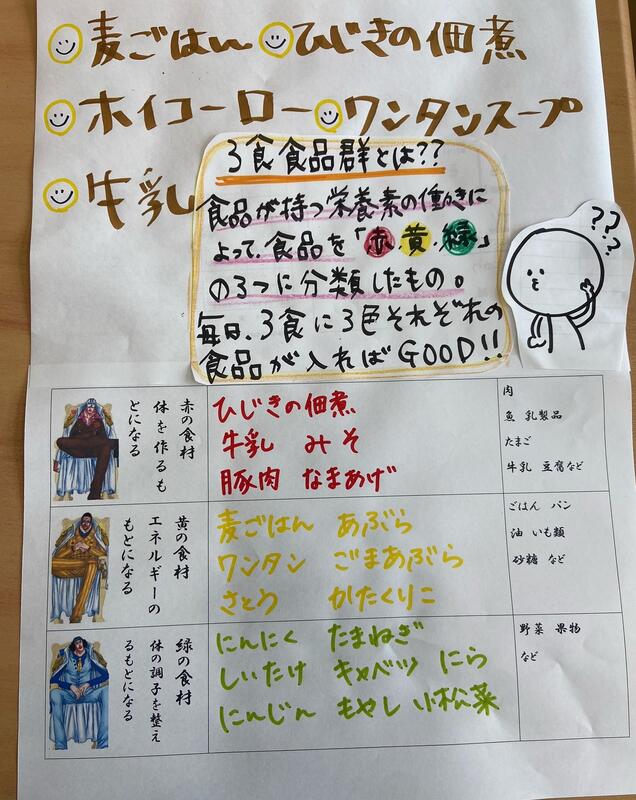 麦ごはん ひじきの佃煮
ホイコーロー ワンタンスープ
牛乳
3食食品群とは??
食品が持つ栄養素の働きに
よって、食品を「赤、黄、緑」
の3つに分類したもの。
毎日、3食に3色それぞれの
食品が入ればGOOD!!
???
赤の食材
体を作るも
とになる
ひじきの佃煮
牛乳 みそ
豚肉 なまあげ
肉
魚 乳製品
たまご
牛乳 豆腐など
黄の食材
エネルギーの
もとになる
麦ごはん あぶら
ワンタン ごまあぶら
さとう かたくりこ
ごはん パン
油 いも類
砂糖 など
緑の食材
体の調子を整え
るもとになる
にんにく たまねぎ
しいたけ キャベツ にら
にんじん もやし 小松菜
野菜 果物
など